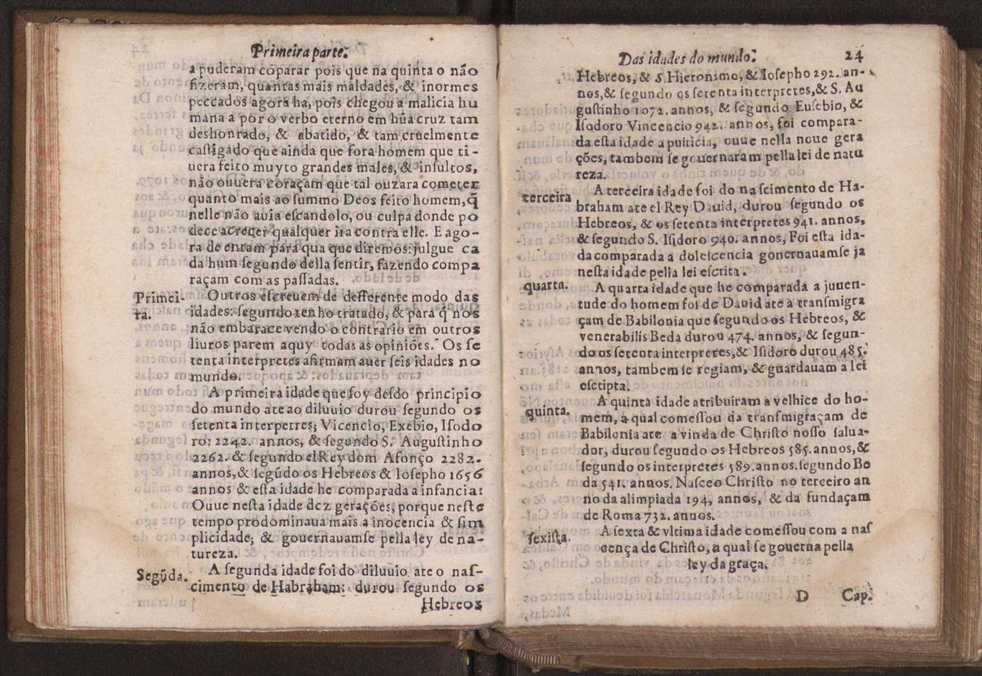 Primeira parte.
a puderam coparar pois que na quinta o não
fizeram, quantas mais maldades, & inormes
peccados agora ha, pois chegou a malicia hu
mana a por o verbo eterno em hũa cruz tam
deshonrado, & abatido, & tam cruelmente
castigado que ainda que fora homem que ti-
uera feito muyto grandes males, & insultos,
não ouuera coraçam que tal ouzara cometer
quanto mais ao summo Deos feito homem, q̃
nelle não auia escandolo, ou culpa donde po
dece acreçer qualquer ira contra elle. E ago-
ra de entam para qua que diremos: julgue ca
da hum segundo della sentir, fazendo compa
raçam com as passadas.
Primei-
ra.
Outros escreuem de desserente modo das
idades: segundo tenho tratado, & para q̃ nos
não embarace vendo o contrario em outros
liuros parem aquy todas as opiniões. Os se
tenta interpretes afirmam auer seis idades no
mundo.
A primeira idade que foy desdo principio
do mundo ate ao diluuio durou segundo os
setenta interperres; Vicencio, Exebio, Isodo
ro: 2242. annos, & segundo S. Augustinho
2262. & segundo el Rey dom Afonço 2282.
annos, & segũdo os Hebreos & Iosepho 1656
annos & esta idade he comparada a infancia:
Ouue nesta idade dez gerações, porque neste
tempo prodominaua mais a inocencia & sim
plicidade; & gouernauamse pella ley de na-
tureza.
Segũda.
A segunda idade foi do diluuio ate o nas-
cimento de Habraham: durou segundo os
Hebreos
Das idades do mundo.
24
Hebreos, & S. Hieronimo, & Iosepho 292. an-
nos, & segundo os setenta interpretes, & S. Au
gustinho 1072. annos, & segundo Eusebio, &
Isodoro Vincencio 942. annos, foi compara-
da esta idade a puiricia, ouue nella noue gera
ções, tambem se gouernaram pella lei de natu
reza.
terceira
A terceira idade foi do nascimento de Ha-
braham ate el Rey Dauid, durou segundo os
Hebreos, & os setenta interpretes 941. annos,
& segundo S. Isidoro 940. annos, Foi esta ida-
da comparada a dolescencia gonernauamse ja
nesta idade pella lei escrita.
quarta.
A quarta idade que he comparada a juuen-
tude do homem foi de Dauid ate a transmigra
çam de Babilonia que segundo os Hebreos, &
venerabilis Beda durou 474. annos, & segun-
do os setenta interpretes, & Isidoro durou 485.
annos, tambem se regiam, & guardauam a lei
esctipta.
quinta.
A quinta idade atribuiram a velhice do ho-
mem, a qual comessou da transmigraçam de
Babilonia ate a vinda de Christo nosso salua-
dor, durou segundo os Hebreos 585. annos, &
segundo os interpretes 589. annos. segundo Be
da 541. annos. Nasceo Christo no terceiro an
no da alimpiada 194, annos, & da fundaçam
de Roma 732. annos.
sexista.
A sexta & vltima idade comessou com a nas
cença de Christo, a qual se gouerna pella
ley da graça.
D
Cap.